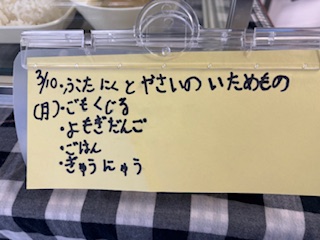 3/10・ぶたにくとやさいのいためもの
(月)・ごもくじる
・よもぎだんご
・ごはん
・ぎゅうにゅう